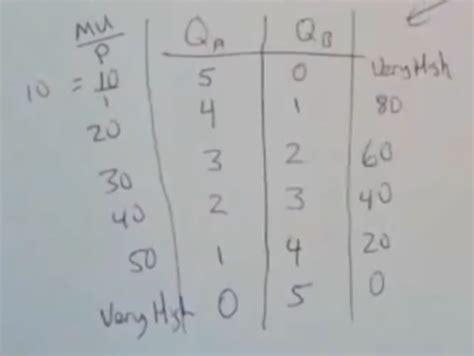 MU/P | QA | QB
10 = 10/1 | 5 | 0 | Very High
20 | 4 | 1 | 80
30 | 3 | 2 | 60
40 | 2 | 3 | 40
50 | 1 | 4 | 20
Very High | 0 | 5 | 0